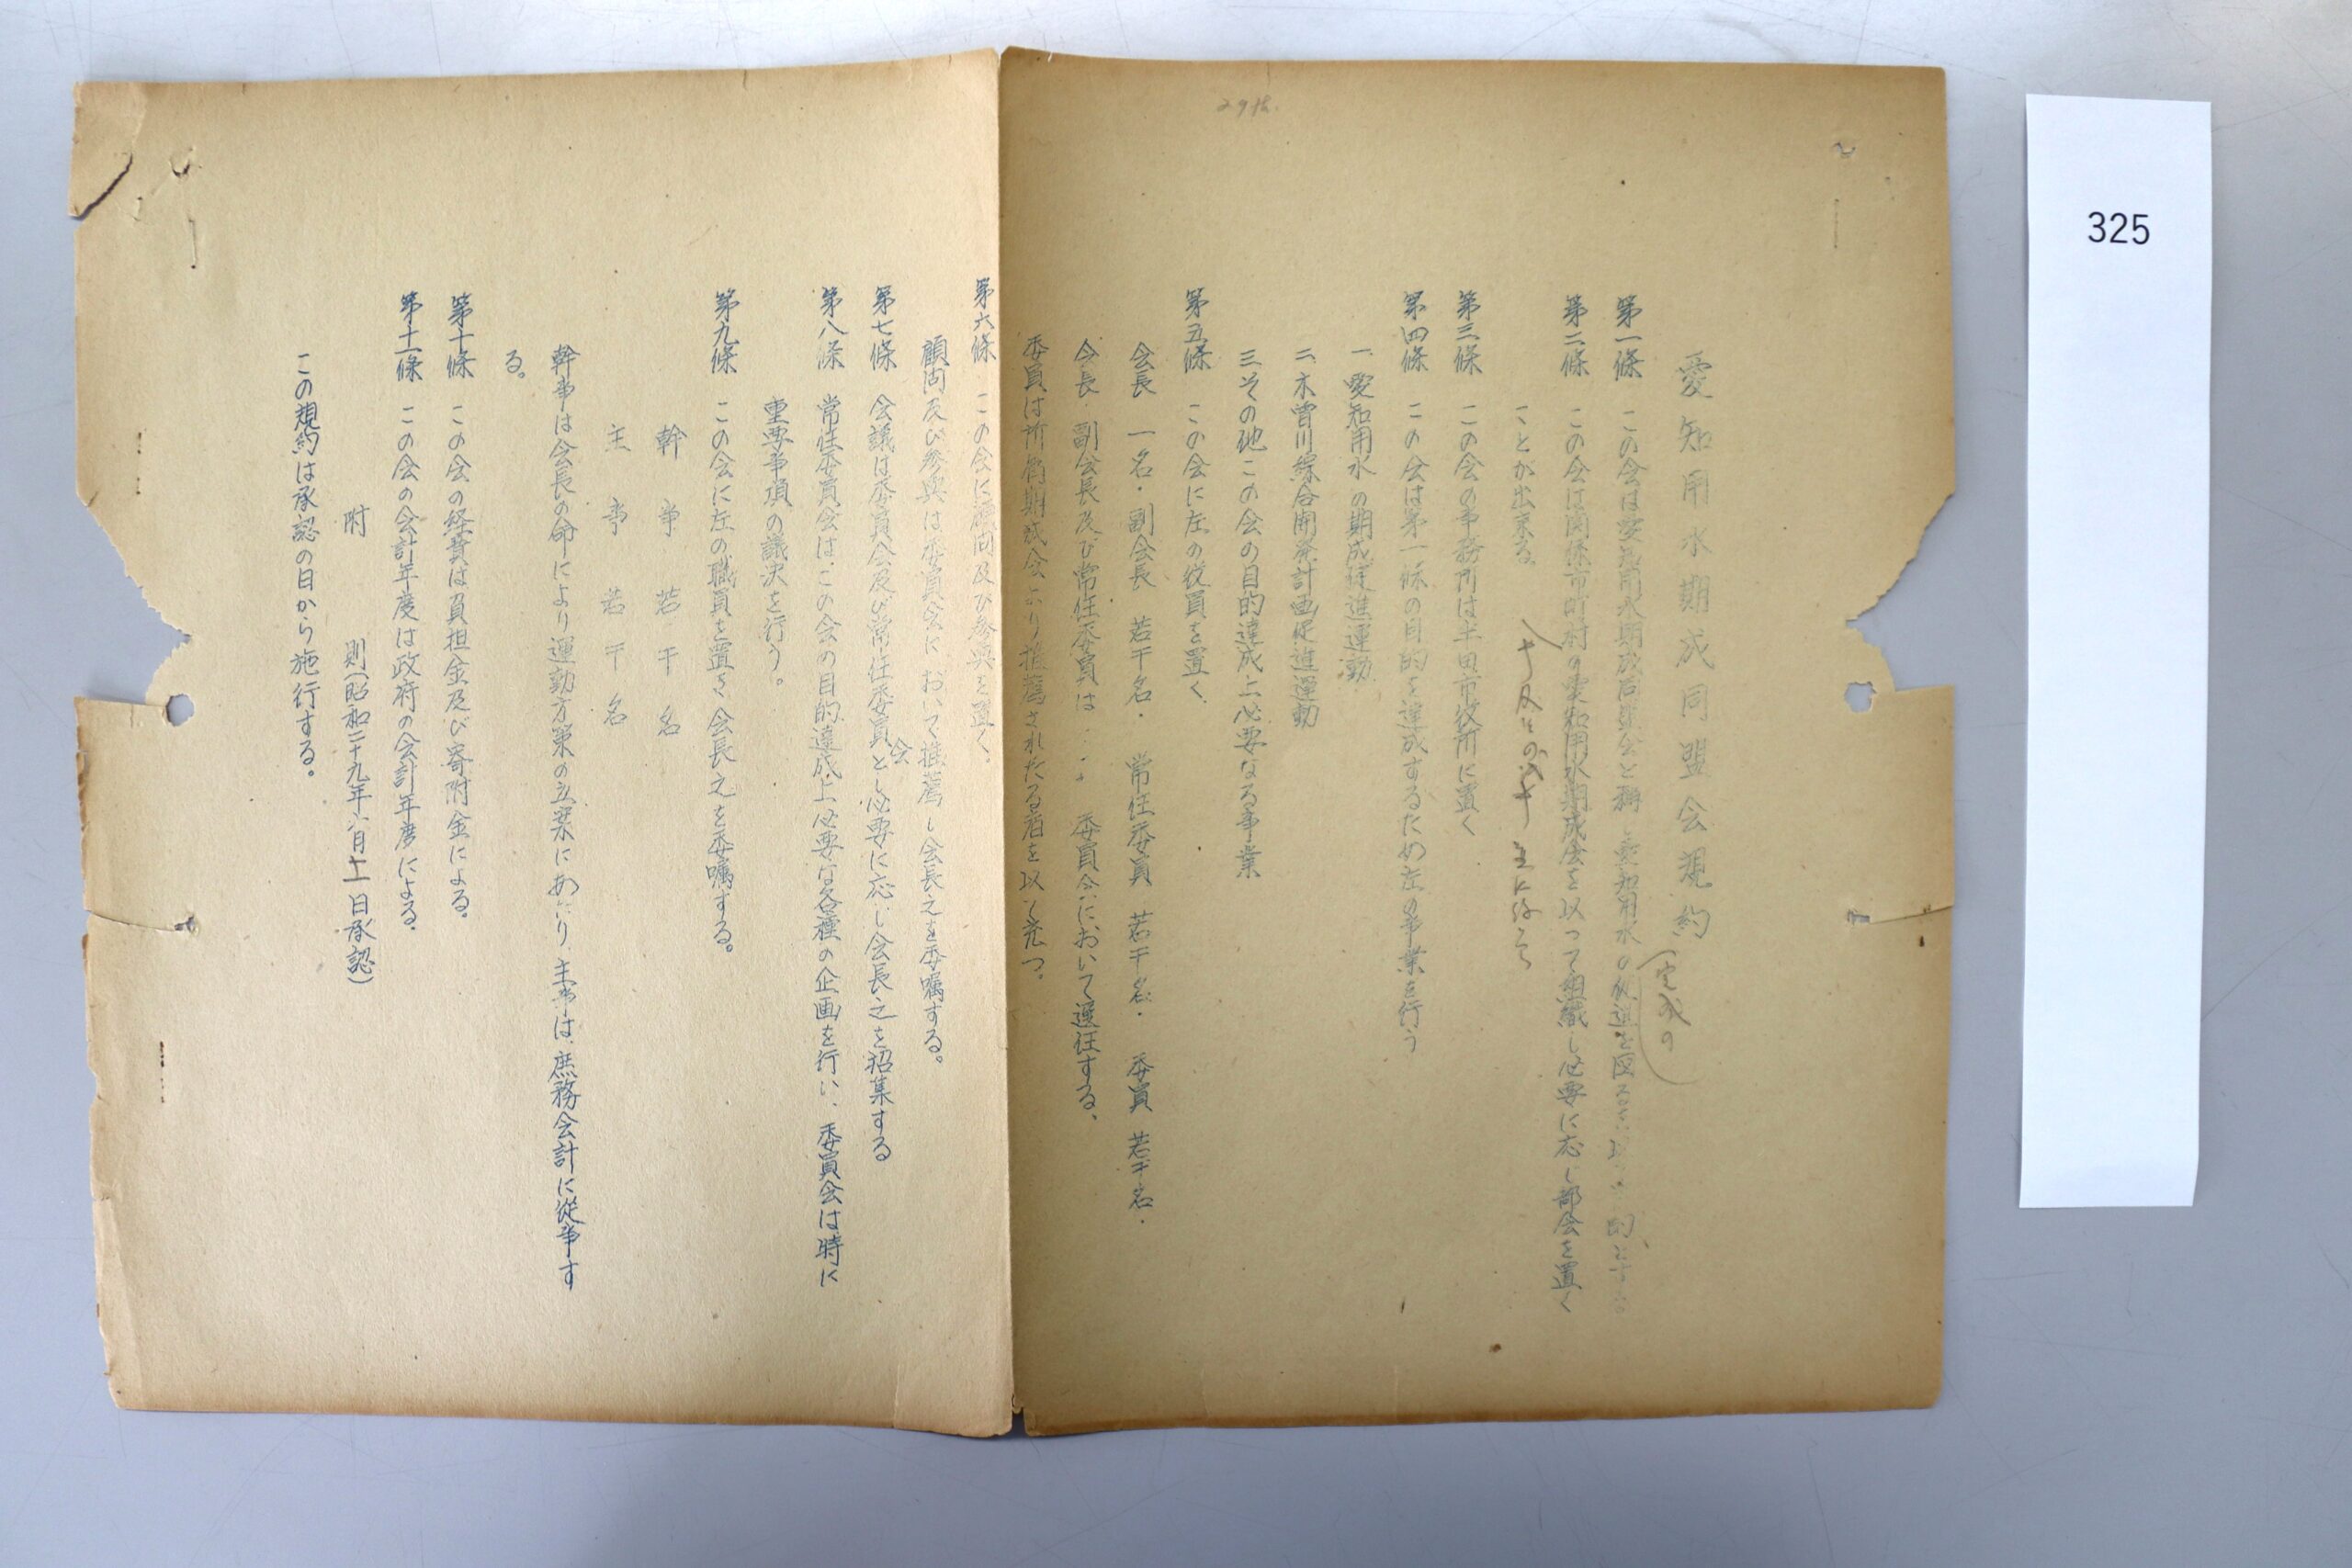 325
愛知用水期成同盟会規約
第一條 この会は愛知用水期成同盟会と称し愛知用水の促進を図る
完成の
第二條 この会は関係市町村の愛知用水期成会を以つて組織し必要に応じ部会を置く
ことが出来る。
第三條 この会の事務所は半田市役所に置く
第四條 この会は第一條の目的を達成するため左の事業を行う
一、愛知用水の期成促進運動
二、木曽川綜合開発計画促進運動
三、その他この会の目的達成上必要なる事業
第五條 この会に左の役員を置く
会長 一名・副会長 若干名・常任委員 若干名・委員 若干名・
会長、副会長及び常任委員は 委員会において選任する、
委員は所轄期成会より推薦されたる者を以て充つ。
第六條 この会に顧問及び参與を置く。
顧問及び参與は委員会において推薦し会長之を委嘱する。
第七條 会議は委員会及び常任委員会とし必要に応じ会長之を招集する
第八條 常任委員会は、この会の目的達成上必要な各種の企画を行い、委員会は時に
重要事項の議決を行う。
第九條 この会に左の職員を置き、会長之を委嘱する。
幹事 若干名
主事 若干名
幹事は会長の命により運動方策の立案にあたり、主事は、庶務会計に従事す
る。
第十條 この会の経費は負担金及び寄附金による。
第十一條 この会の会計年度は政府の会計年度による。
附 則(昭和二十九年六月十一日承認)
この規約は承認の日から施行する。